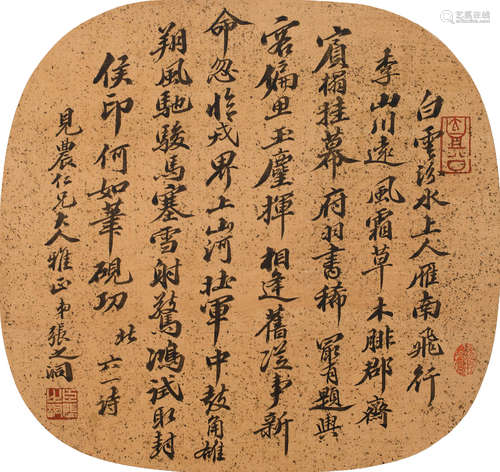 白雲汾水上人雁南飛行
李山川遠風霜草木腓郡齋
賓榻挂幕府羽書稀最有題輿
客偏思玉麈揮相逢舊從事新
命忽臨戎界上山河壯軍中鼓角雄
朔風馳駿馬塞雪射驚鴻試取封
侯印何如筆硯功此六一詩
見農仁兄大人雅正弟張之洞